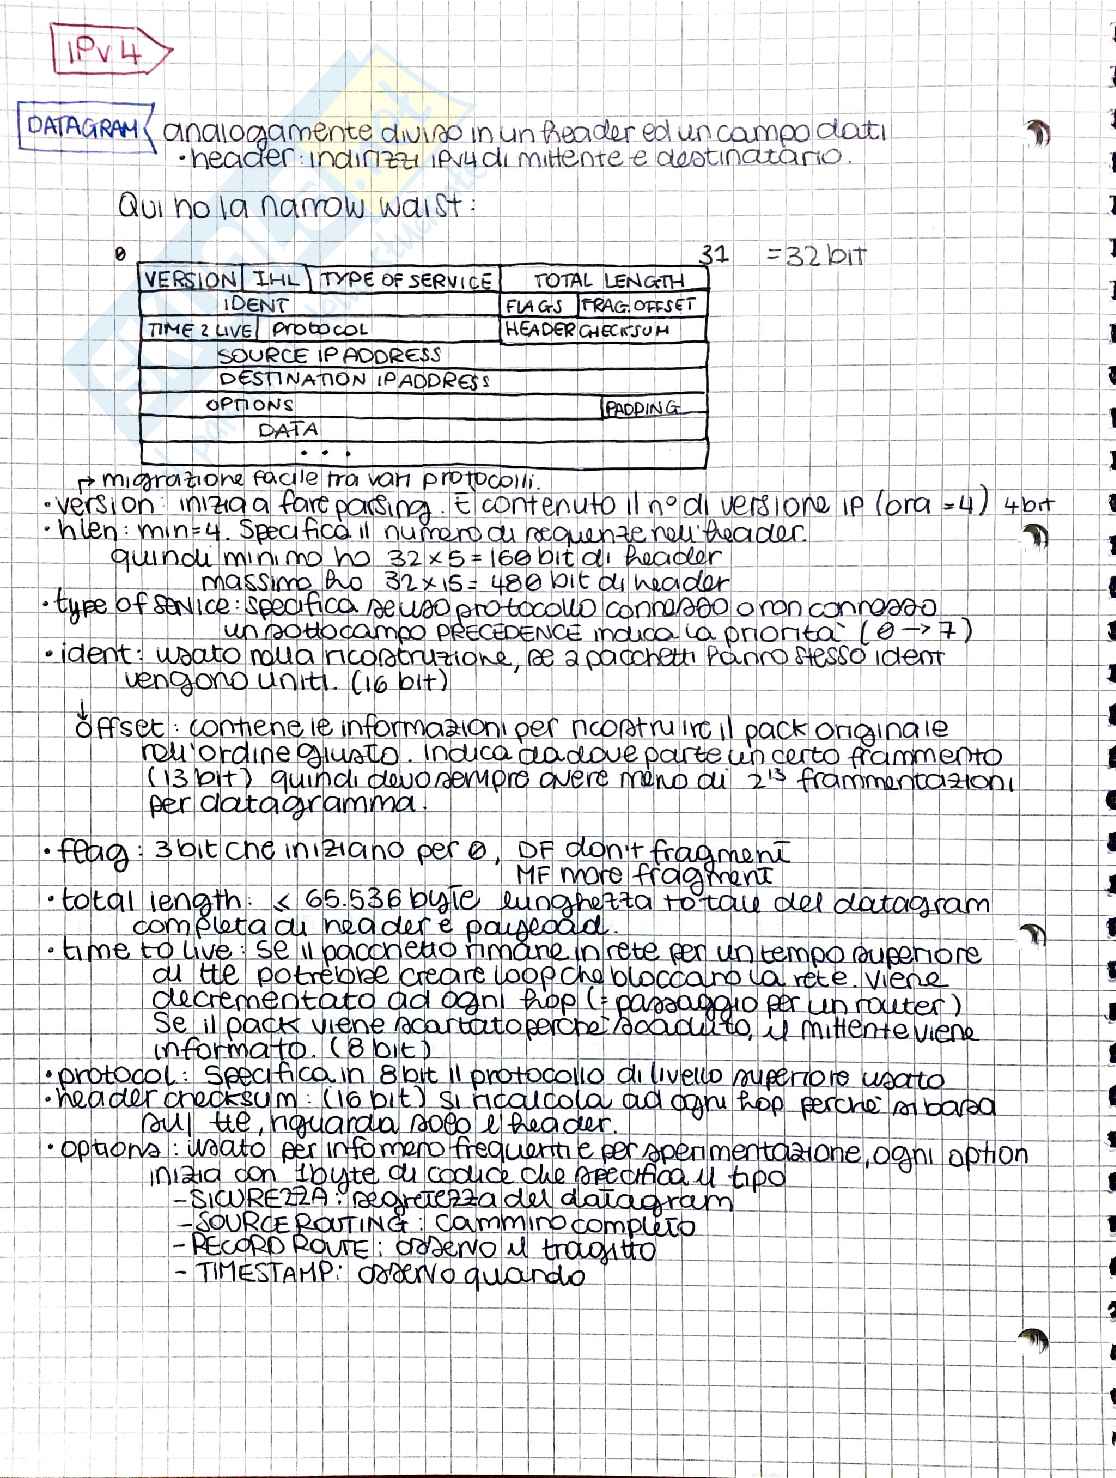 IPv4
DATAGRAM analogamente diviso in un header ed un campo dati
• header: indirizzi IPv4 di mittente e destinatario.
Qui ho la narrow waist:
0 31 = 32 bit
VERSION IHL TYPE OF SERVICE TOTAL LENGTH
IDENT FLAGS FRAG. OFFSET
TIME 2 LIVE protocol HEADER CHECKSUM
SOURCE IP ADDRESS
DESTINATION IP ADDRESS
OPTIONS PADDING
DATA
...
↱ migrazione facile tra vari protocolli.
• version: inizia a fare parsing. È contenuto il n° di versione IP (ora = 4) 4 bit
• hlen: min=4. Specifica il numero di sequenze nell'header.
quindi minimo ho 32 x 5 = 160 bit di header
massimo ho 32 x 15 = 480 bit di header
• type of service: specifica se uso protocollo connesso o non connesso
un sottocampo PRECEDENCE indica la priorità (0 → 7)
• ident: usato nella ricostruzione, se 2 pacchetti hanno stesso ident
vengono uniti. (16 bit)
↓
offset: contiene le informazioni per ricostruire il pack originale
nell'ordine giusto. Indica da dove parte un certo frammento
(13 bit) quindi devo sempre avere meno di 2¹³ frammentazioni
per datagramma.
• flag: 3 bit che iniziano per 0, DF don't fragment
MF more fragment
• total length: < 65.536 byte lunghezza totale del datagram
completa di header e payload.
• time to live: se il pacchetto rimane in rete per un tempo superiore
di ttl potrebbe creare loop che bloccano la rete. Viene
decrementato ad ogni hop (= passaggio per un router)
Se il pack viene scartato perchè scaduto, il mittente viene
informato. (8 bit)
• protocol: specifica in 8 bit il protocollo di livello superiore usato
• header checksum: (16 bit) si ricalcola ad ogni hop perchè si basa
sul ttl, riguarda solo l'header.
• options: usato per info meno frequenti e per sperimentazione, ogni option
inizia con 1 byte di codice che specifica il tipo
- SICUREZZA: segretezza del datagram
- SOURCE ROUTING: cammino completo
- RECORD ROUTE: osservo il tragitto
- TIMESTAMP: osservo quando